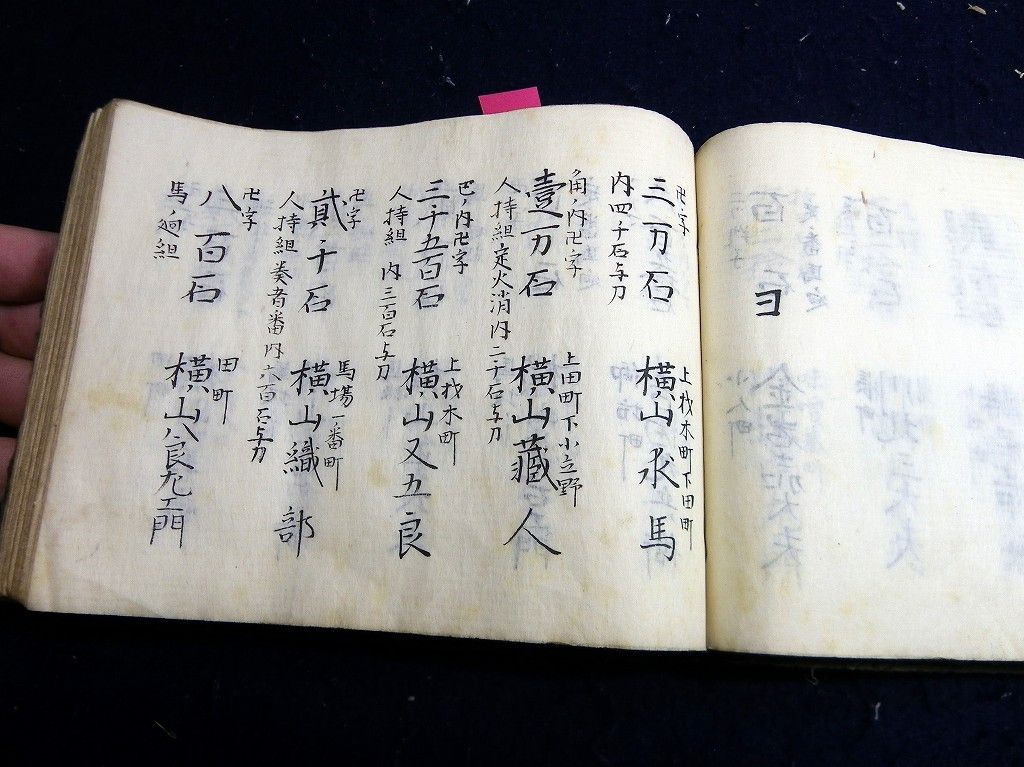 ヨ
卍字
三万石
内四千石与力
上材木町下田町
横山求馬
角ノ内卍字
壹万石
人持組定火消内二千石与力
上田町下小立野
横山藏人
巴ノ内卍字
三千五百石
人持組 内三百石与力
上材木町
横山又五良
卍字
貳千石
人持組奏者番内六百石与力
馬場一番町
横山織部
卍字
八百石
馬廻組
田町
横山八良左エ門